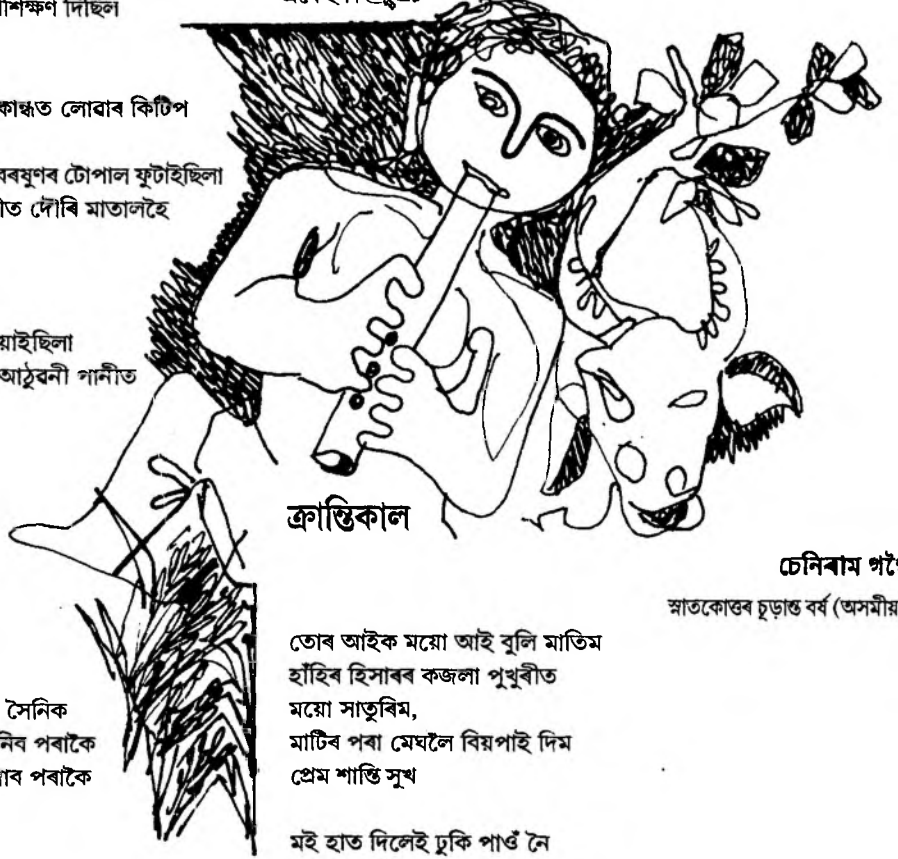 প্ৰশিক্ষণ দিছিল
কান্ধত লোৱাৰ কিটিপ
বৰষুণৰ টোপাল ফুটাইছিলা
দৌৰি মাতালহৈ
য়াইছিলা
আঠুৱনী পানীত
সৈনিক
পৰাকৈ
পৰাকৈ
ক্ৰান্তিকাল
চেনিৰাম গগৈ
স্নাতকোত্তৰ চূড়ান্ত বৰ্ষ (অসমীয়া
তোৰ আইক ময়ো আই বুলি মাতিম
হাঁহিৰ হিসাৰৰ কজলা পুখুৰীত
ময়ো সাতুৰিম,
মাটিৰ পৰা মেঘলৈ বিয়পাই দিম
প্ৰেম শান্তি সুখ
মই হাত দিলেই ঢুকি পাওঁ নৈ